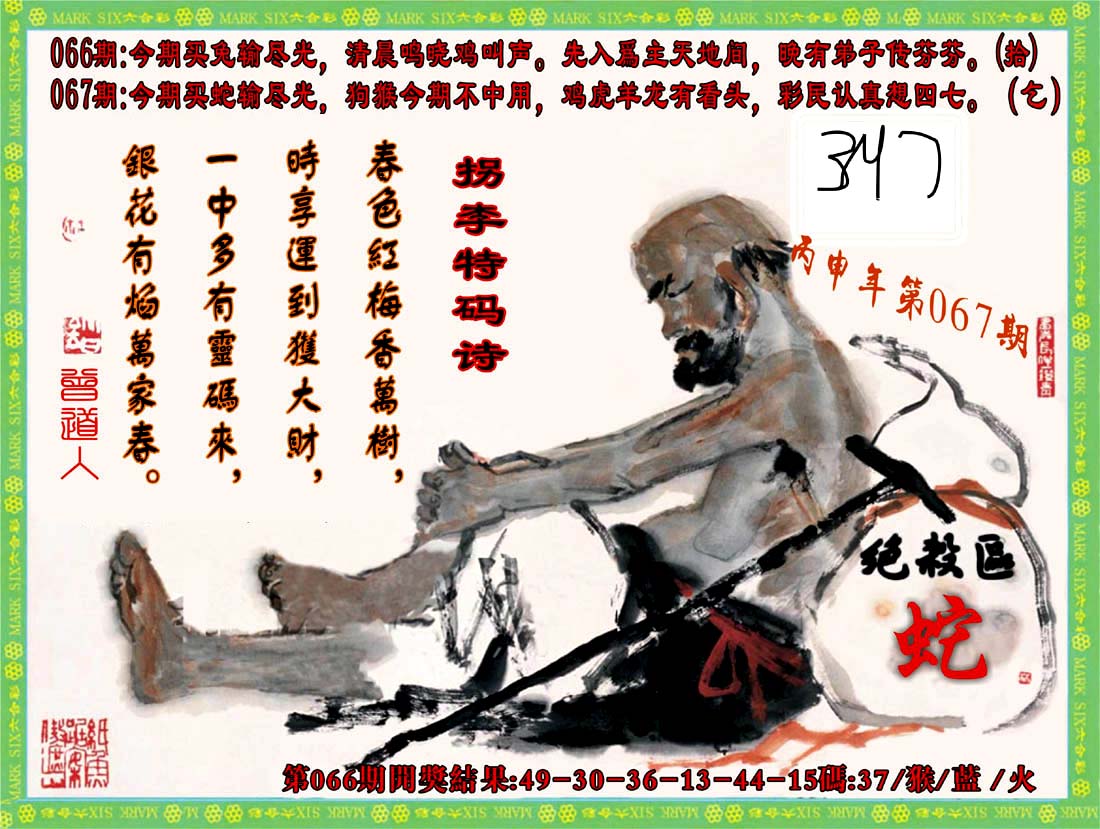 MARK SIX六合彩
066期:今期买兔输尽光，清晨鸣晓鸡叫声。先入爲主天地间，晚有弟子传芬芬。(拾)
067期:今期买蛇输尽光，狗猴今期不中用，鸡虎羊龙有看头，彩民认真想四七。（乞）
347
丙申年第067期
拐李特码诗
春色紅梅香萬樹，
時享運到獲大財，
一中多有靈碼來，
銀花有焔萬家春。
曾道人
绝殺區
蛇
第066期開獎結果:49-30-36-13-44-15碼:37/猴/藍/火